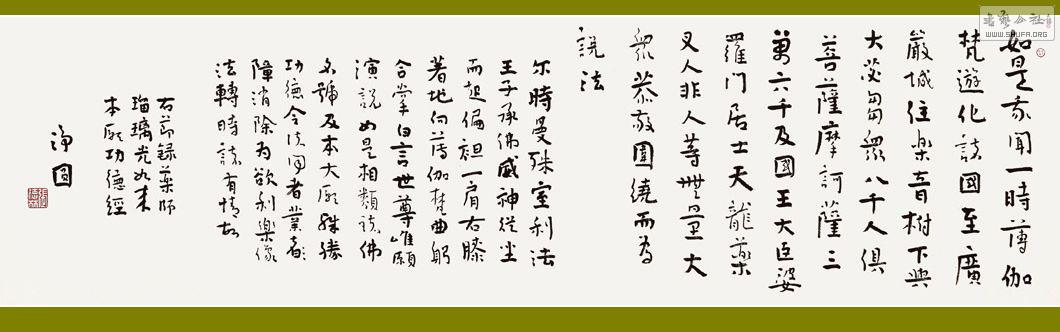 如是我聞一時薄伽
梵遊化諸國至廣
嚴城住樂音樹下與
大苾芻眾八千人俱
菩薩摩訶薩三
萬六千及國王大臣婆
羅門居士天龍藥
叉人非人等無量大
眾恭敬圍繞而為
說法
尔時曼殊室利法
王子承佛威神從坐
而起偏袒一肩右膝
著地向薄伽梵曲躬
合掌白言世尊唯願
演說如是相類諸佛
名號及本大願殊勝
功德令諸聞者業
障消除為欲利樂像
法轉時諸有情故
右節錄藥師
瑠璃光如來
本願功德經
淨圓
書藝公社
WWW.SHUFA.ORG